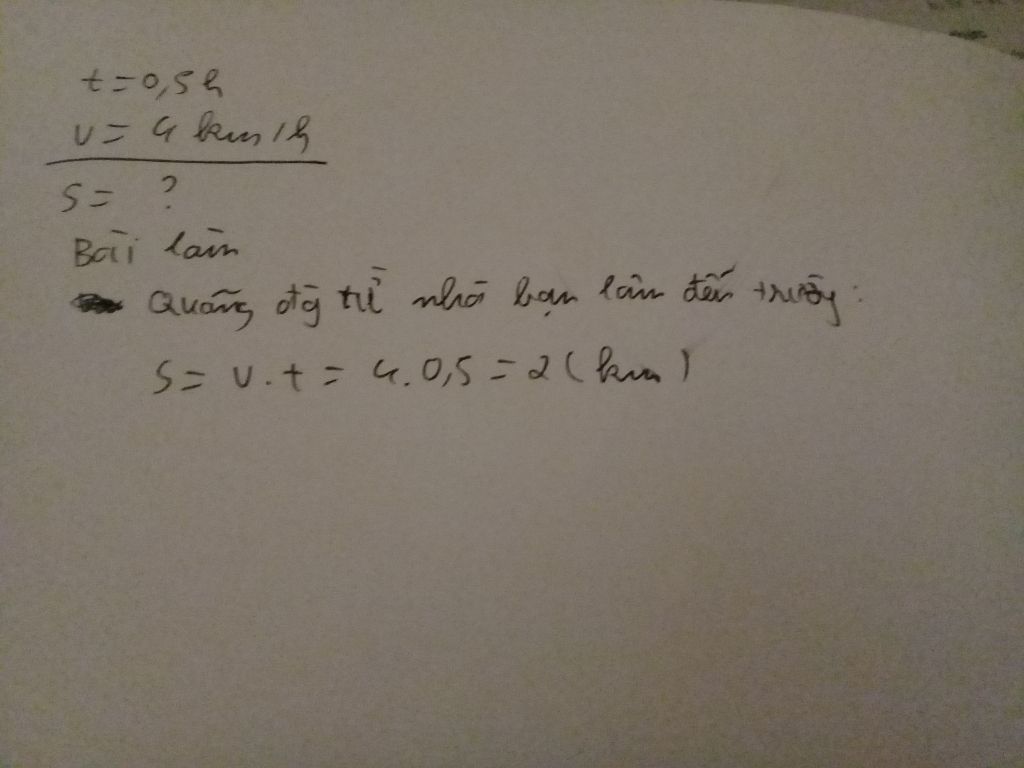 t = 0,5 h
v = 4 km/h
s = ?
Bài làm
Quãng đg từ nhà bạn lâm đến trường:
s = v . t = 4 . 0,5 = 2 (km)